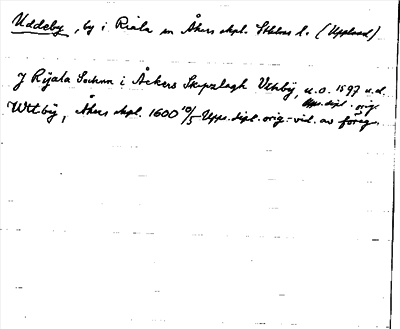 Uddeby, by i Riala sn Åkers skpl. Sthlms l. (Uppland)
J Rÿala Sochnn i Åckers Skepzlagh Vttbÿ, u.o. 1597 u.d.
Upps. dipl. orig.
Wttbÿ, Åkers skpl. 1600 10/5 Upps. dipl. orig.-vid. av föreg.